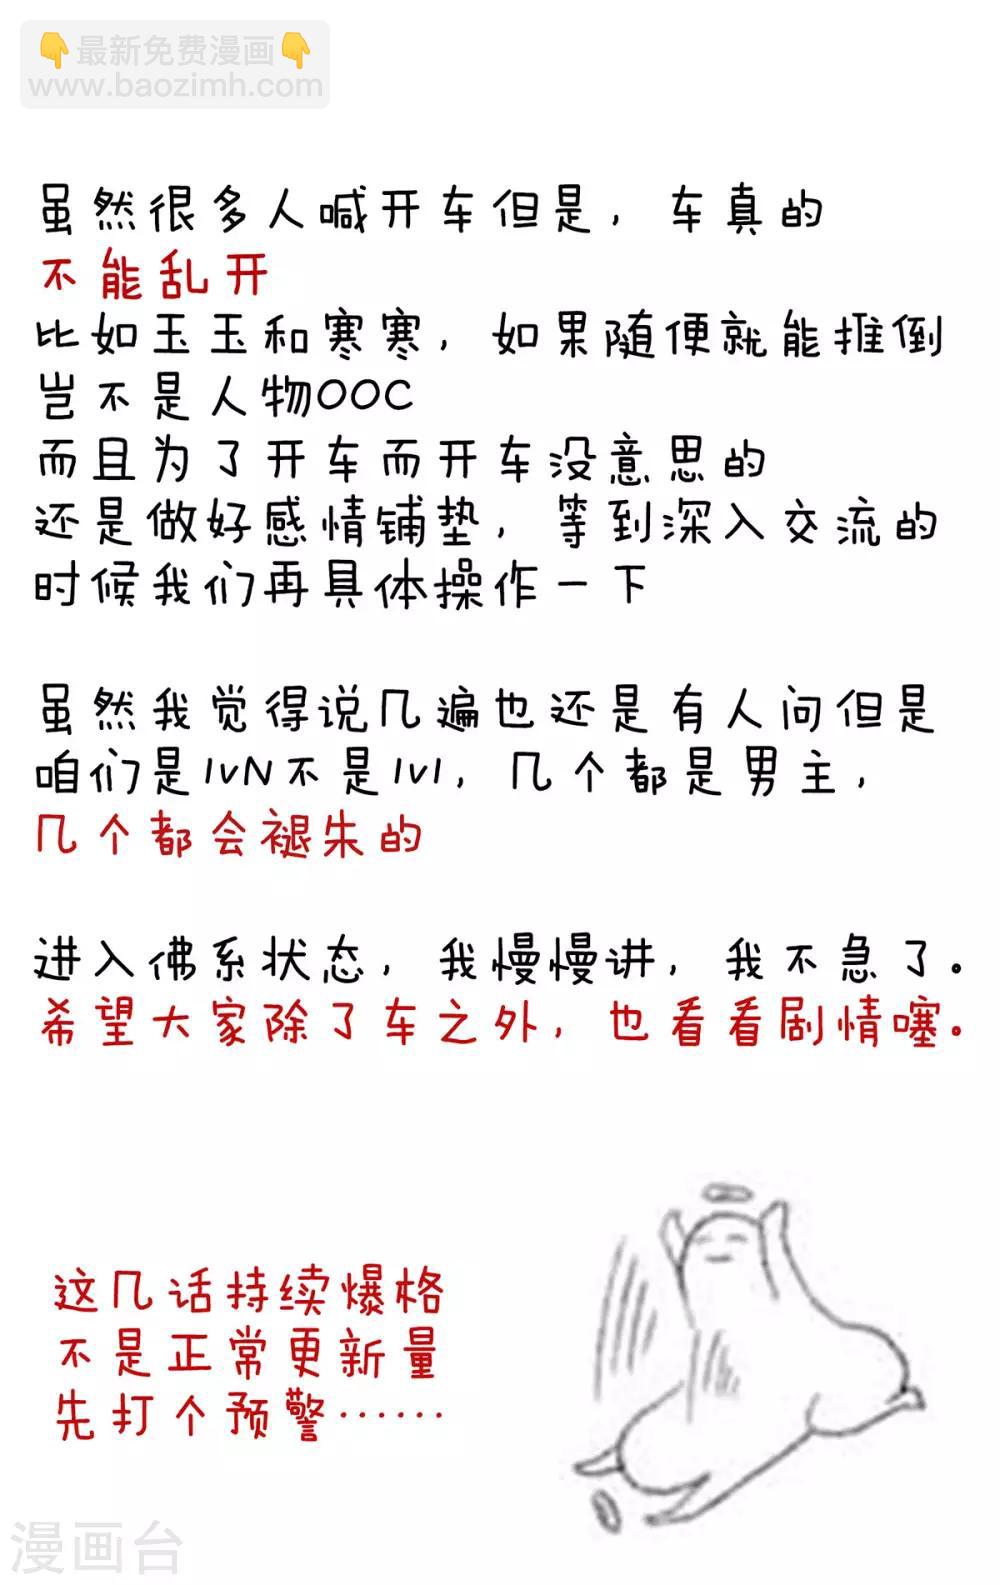 👇最新免费漫画👇
www.baozimh.com
虽然很多人喊开车但是，车真的
不能乱开
比如玉玉和寒寒，如果随便就能推倒
岂不是人物OOC
而且为了开车而开车没意思的
还是做好感情铺垫，等到深入交流的
时候我们再具体操作一下
虽然我觉得说几遍也还是有人问但是
咱们是1vN不是1v1，几个都是男主，
几个都会褪朱的
进入佛系状态，我慢慢讲，我不急了。
希望大家除了车之外，也看看剧情噻。
这几话持续爆格
不是正常更新量
先打个预警……
漫画台